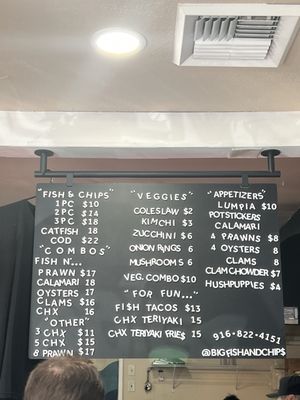 "FISH & CHIPS"
1PC $10
2PC $14
3PC $18
CATFISH 18
COD $22
"COMBOS"
FISH N'...
PRAWN $17
CALAMARI 18
OYSTERS 17
CLAMS $16
CHX 16
"OTHER"
3 CHX $11
5 CHX $15
8 PRAWN $17
"VEGGIES"
COLESLAW $2
KIMCHI $3
ZUCCHINI $6
ONION RINGS 6
MUSHROOMS 6
VEG. COMBO $10
"FOR FUN..."
FISH TACOS $13
CHX TERIYAKI 15
CHX TERIYAKI FRIES 15
"APPETIZERS"
LUMPIA $10
POTSTICKERS
CALAMARI
4 PRAWNS $8
4 OYSTERS 8
CLAMS 8
CLAM CHOWDER $7
HUSHPUPPIES $4
916-822-4151
@BIGFISHANDCHIPS